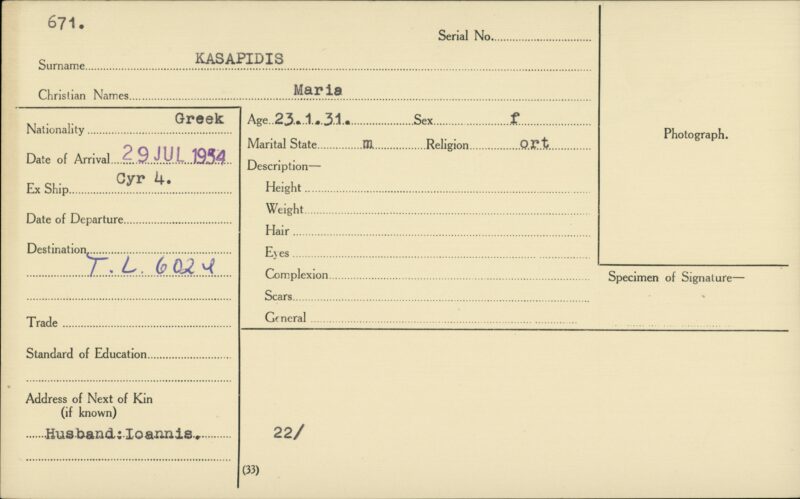 671.
Serial No.
Surname KASAPIDIS
Christian Names Maria
Nationality Greek
Date of Arrival 29 JUL 1954
Ex Ship Cyr 4.
Date of Departure
Destination
T. L. 6024
Trade
Standard of Education
Address of Next of Kin
(if known)
Husband:Ioannis.
Age 23.1.31. Sex f
Marital State m Religion ort
Description—
Height
Weight
Hair
Eyes
Complexion
Scars
General
Photograph.
Specimen of Signature—
22/
(33)